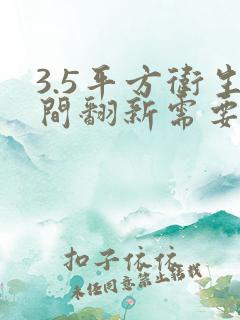 3.5平方衛生
間翻新需要
扣子依依
未任同意禁止转载